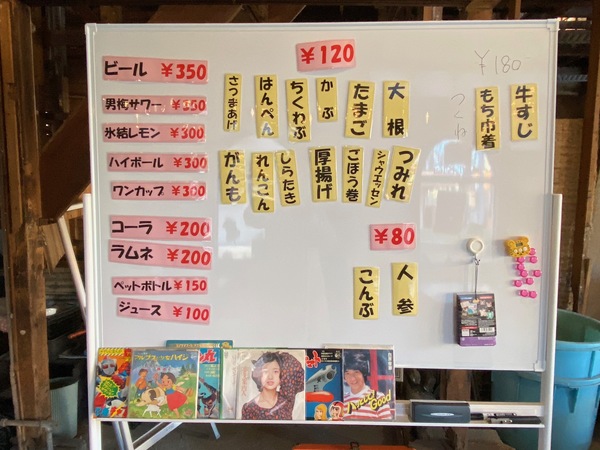 ビール ¥350
男梅サワー ¥350
氷結レモン ¥300
ハイボール ¥300
ワンカップ ¥300
コーラ ¥200
ラムネ ¥200
ペットボトル ¥150
ジュース ¥100
¥120
大根
たまご
かぶ
ちくわぶ
はんぺん
さつまあげ
つみれ
シャウエッセン
ごぼう巻
厚揚げ
しらたき
れんこん
がんも
¥80
人参
こんぶ
¥180-
牛すじ
もち巾着
つくね